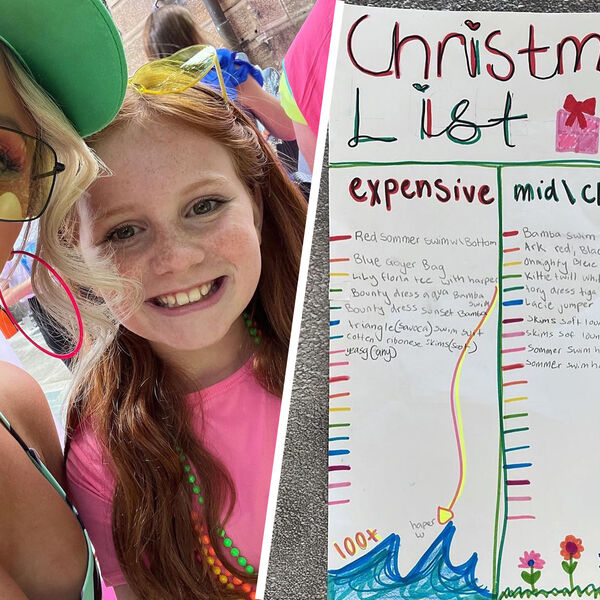 Christm
List
expensive
Red Sommer swim w\ Bottom
Blue Goyer Bag
Lily floria tee with harper
Bounty dress aqua Bamba
Swim
Bounty dress sunset Bamba
triangle (savoca) swim suit
cotten/ ribonese skims (sof)
yeasy (any)
haper
w
100+
mid\c
Bamba swim
Ark red, Blac
Onmighty Blue
Kitte twill whit
tory dress tys
Lacie jumper
Skims soft loun
skims sof loun
Sommer swim h
Sommer swim ha